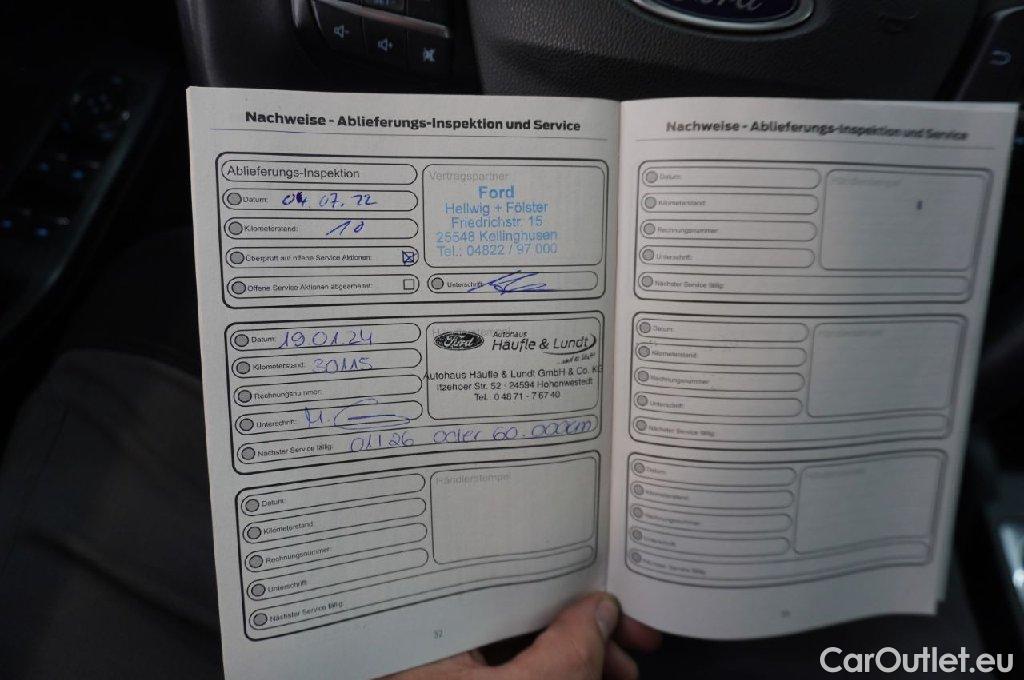 Ford
Nachweise - Ablieferungs-Inspektion und Service
Ablieferungs-Inspektion
Datum: 04.07.22
Kilometerstand: 10
Überprüft auf offene Service Aktionen:
Offene Service Aktionen abgearbeitet:
Vertragspartner
Ford
Hellwig + Fölster
Friedrichstr. 15
25548 Kellinghusen
Tel.: 04822 / 97 000
Unterschrift:
Datum: 19.01.24
Kilometerstand: 30115
Rechnungsnummer:
Unterschrift:
Nächster Service fällig: 01/26 oder 60.000km
Ford
Autohaus
Häufle & Lundt
Autohaus Häufle & Lundt GmbH & Co. KG
Itzehoer Str. 52 - 24594 Hohenwestedt
Tel. 0 48 71 - 7 67 40
Datum:
Kilometerstand:
Rechnungsnummer:
Unterschrift:
Nächster Service fällig:
Händlerstempel
32
Nachweise - Ablieferungs-Inspektion und Service
Datum:
Kilometerstand:
Rechnungsnummer:
Unterschrift:
Nächster Service fällig:
Händlerstempel
Datum:
Kilometerstand:
Rechnungsnummer:
Unterschrift:
Nächster Service fällig:
Datum:
Kilometerstand:
Rechnungsnummer:
Unterschrift:
Nächster Service fällig:
CarOutlet.eu